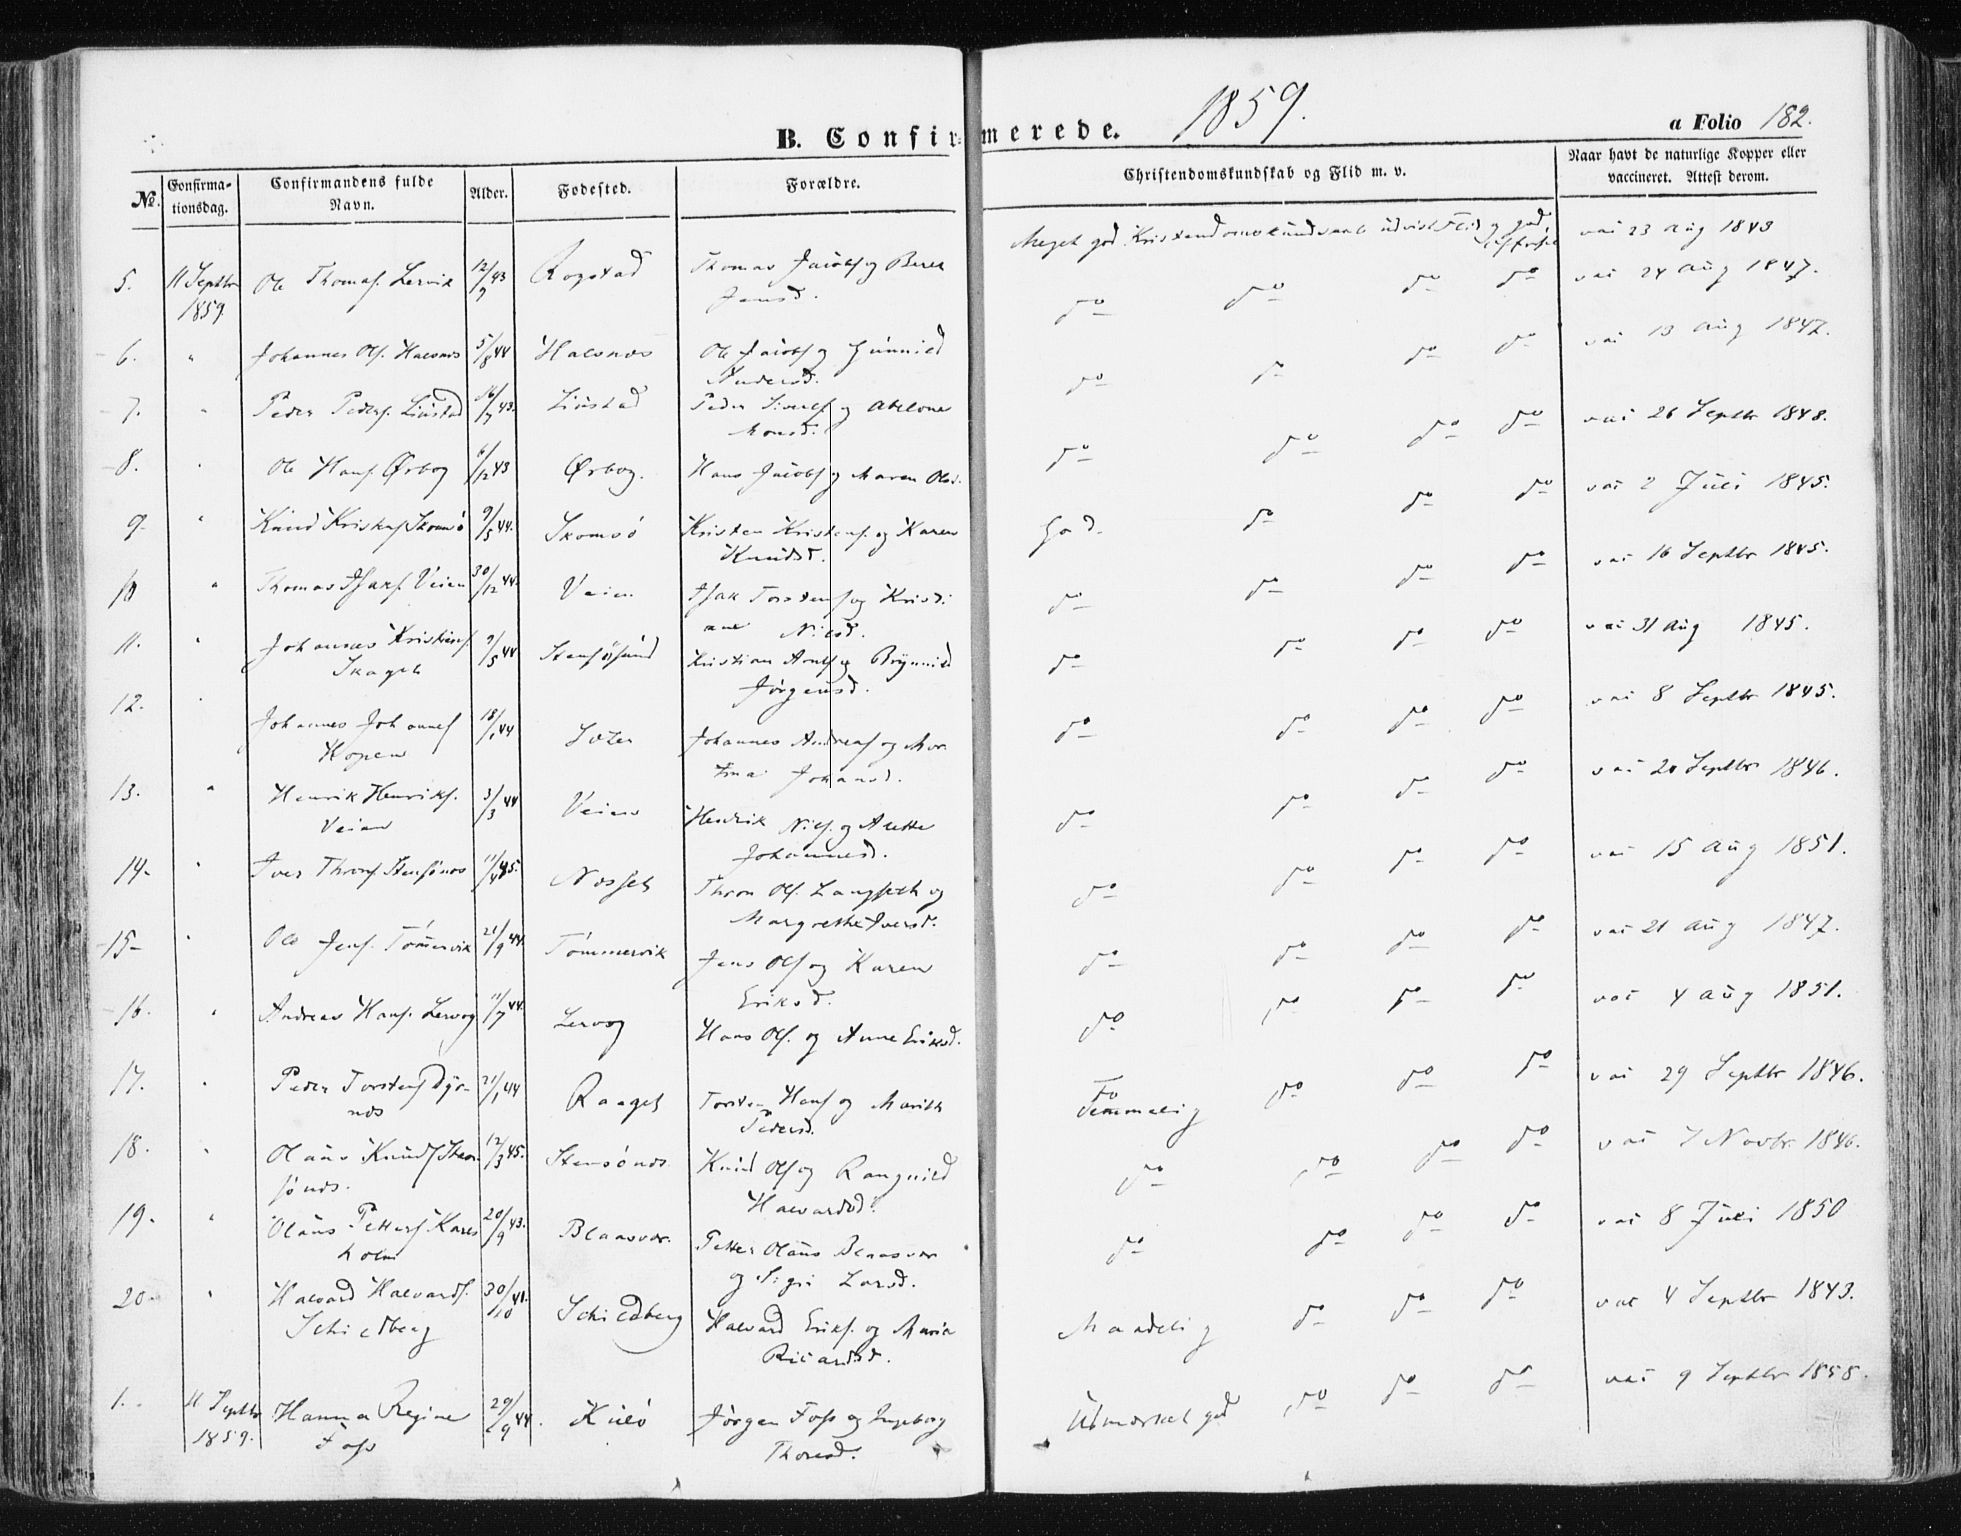 B. Confirmerede. 1859. a Folio 182.
No. Confirmationsdag. Confirmandens fulde Navn. Alder. Fødested. Forældre. Christendomskundskab og Flid m. v. Naar havt de naturlige Kopper eller vaccineret. Attest derom.
5. 11 Septbr 1859 Ole Thomas. Lervik 12/9 43 Rogstad Thomas Jacobs. og Beret Jensd. Meget god Kristendomskundskab udvist Flid og god vac 23 Aug 1843
6. " Johannes Ols. Halsnæs 5/8 44 Halsnæs Ole Jacobs. og Gunnild Andersd. do do do do vac 24 Aug 1847.
7. " Peder Peders. Liustad 16/7 43. Liustad Peder Siverts. og Abelone Monsd. do do do do vac 13 Aug 1847.
8. " Ole Hans. Ørbog 6/12 43 Ørbog. Hans Jacobs. og Maren Olsd. do do do do vac 26 Septbr 1848.
9. " Knud Kristens. Skomsö 9/5 44. Skomsö Kristen Kristens. og Karen Knudsd. God. do do do vac 2 Juli 1845.
10 " Thomas Isaks. Veien 30/12 44. Veien Isak Torstens. og Kristiane Nilsd. do do do do vac 16 Septbr 1845.
11. " Johannes Kristians. Skaget 9/5 44 Stensösund Kristian Arnts. og Brynnild Jörgensd. do do do do vac 31 Aug 1845.
12. " Johannes Johannes. Kopen 18/1 44 Johannes Andreas. og Martha Johansd. do do do do vac 8 Septbr 1845.
13. " Henrik Henriks. Veien 3/3 44 Veien Hendrik Nils. og Anette Johannesd. do do do do vac 20 Septbr 1846.
14. " Iver Throns. Stensönæs 11/4 45. Næsset Thron Ols. Langseth og Margrethe Iversd. do do do do vac 15 Aug 1851.
15 " Ole Jens. Tömmervik 21/9 44. Tömmervik Jens Ols. og Karen Eriksd. do do do do vac 21 Aug 1847.
16. " Andreas Hans. Lervog 11/7 44. Lervog Hans Ols. og Anne Eriksd. do do do do vac 4 Aug 1851.
17. " Peder Torstens. Dyrnæs 21/1 44 Raaget Torsten Hans. og Marith Pedersd. do Temmelig do do do vac 29 Septbr 1846.
18. " Olaus Knuds. Stensönæs. 12/3 45. Stensönæs. Knud Ols. og Rangnild Halvardsd. do do do do vac 7 Novbr 1846.
19. " Olaus Petters. Karlsholm 20/9 43. Blaasvær. Petter Olaus Blaasvær og Sigri Larsd. do do do do vac 8 Juli 1850
20. " Halvard Halvards. Schiedberg 30/10 41. Schiedberg Halvard Eriks. og Maria Ricardsd. Maadelig do do do vac 4 Septbr 1843.
1. 11 Septbr 1859. Hanna Regine Foss 29/9 44. Kulö Jörgen Foss og Ingeborg Thoresd. Udmærket god do do do vac 9 Septbr 1858.